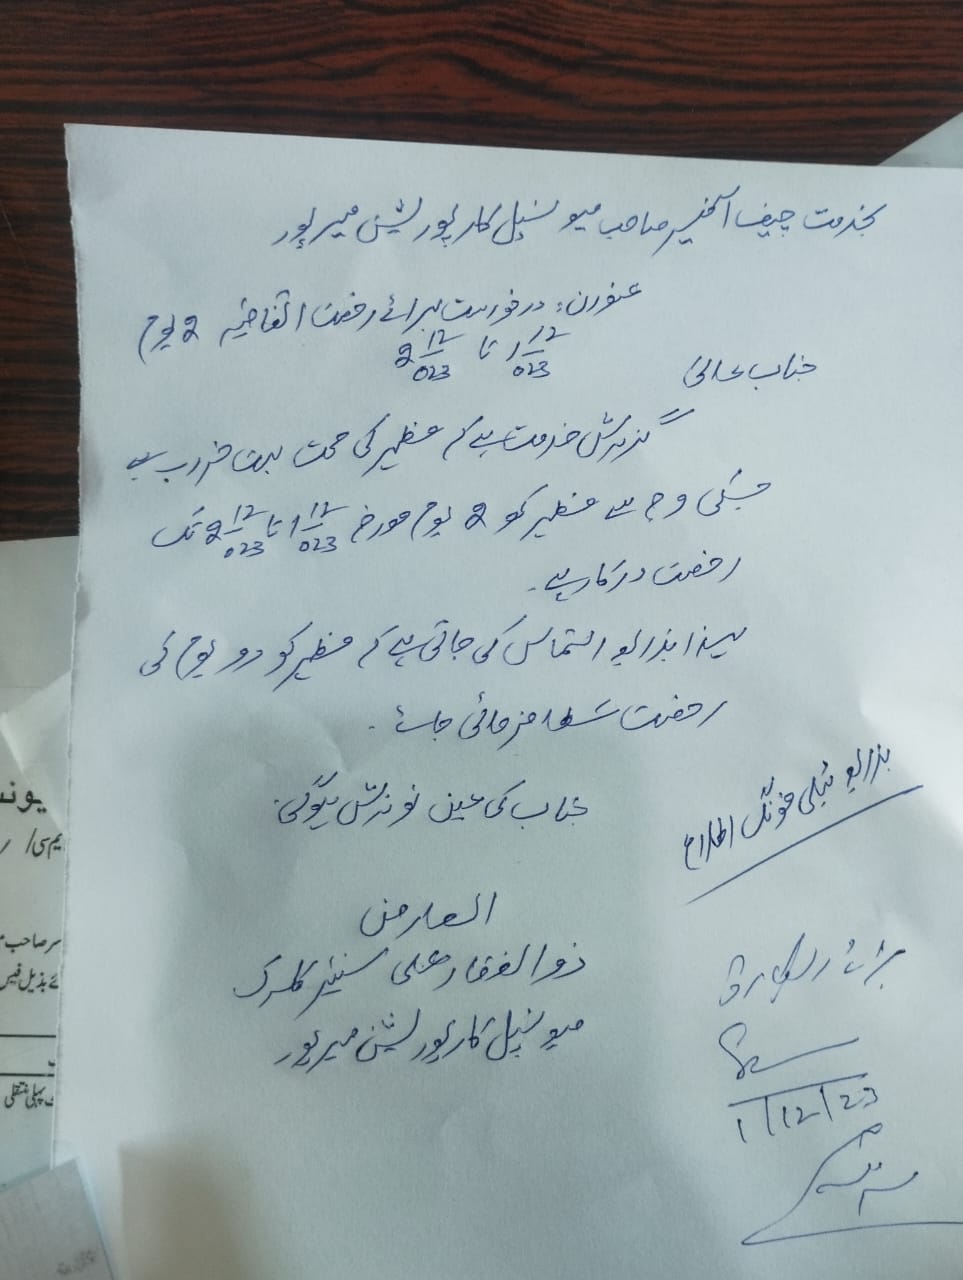 بخدمت چیف آفیسر صاحب میونسپل کارپوریشن میرپور
عنوان: درخواست برائے رخصت اتفاقیہ 2 یوم
1 12/023 تا 2 12/023
جناب عالی
گزارش خدمت ہے کہ مظہر کی صحت بہت خراب ہے
جسکی وجہ سے مظہر کو 2 یوم مورخہ 1 12/023 تا 2 12/023 تک
رخصت درکار ہے۔
لہذا بذریعہ التماس کی جاتی ہے کہ مظہر کو دو یوم کی
رخصت عطا فرمائی جائے۔
جناب کی عین نوازش ہوگی۔
بذریعہ ٹیلی فونک اطلاع
العارض
ذوالفقار علی سنیئر کلرک
میونسپل کارپوریشن میرپور
برائے ریکارڈ
1/12/23
یونسـ
یم سی/
سر صاحب
ئے بذیل فیس
پہلی منتقلی